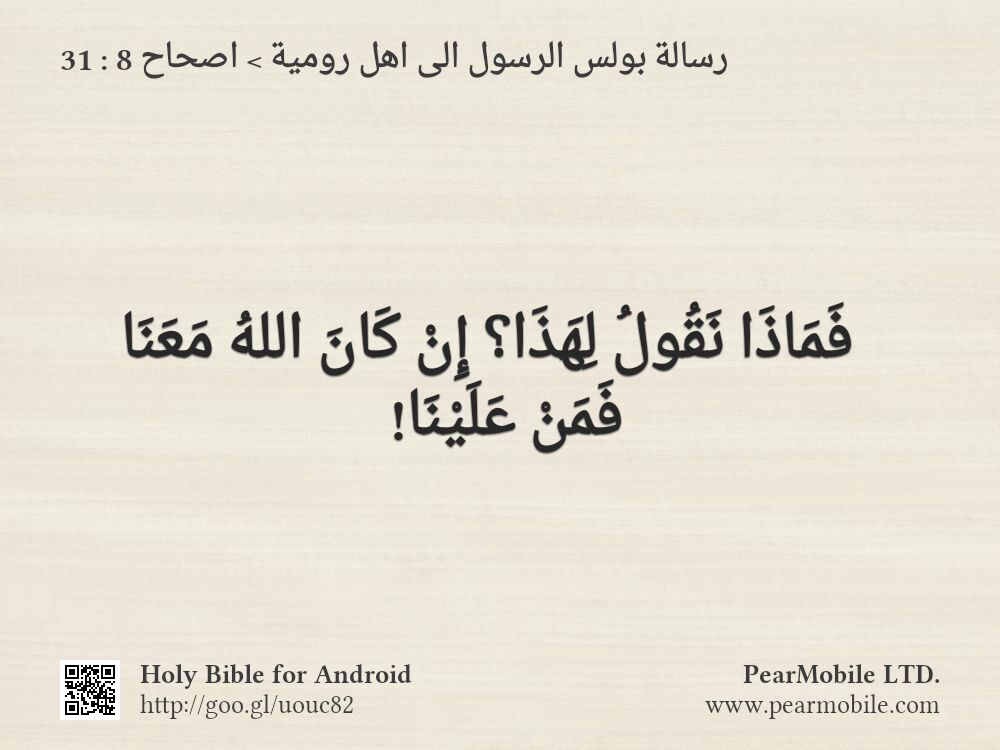 رسالة بولس الرسول الى اهل رومية > اصحاح 8 : 31
فَمَاذَا نَقُولُ لِهَذَا؟ إِنْ كَانَ اللهُ مَعَنَا
فَمَنْ عَلَيْنَا!
Holy Bible for Android
http://goo.gl/uouc82
PearMobile LTD.
www.pearmobile.com